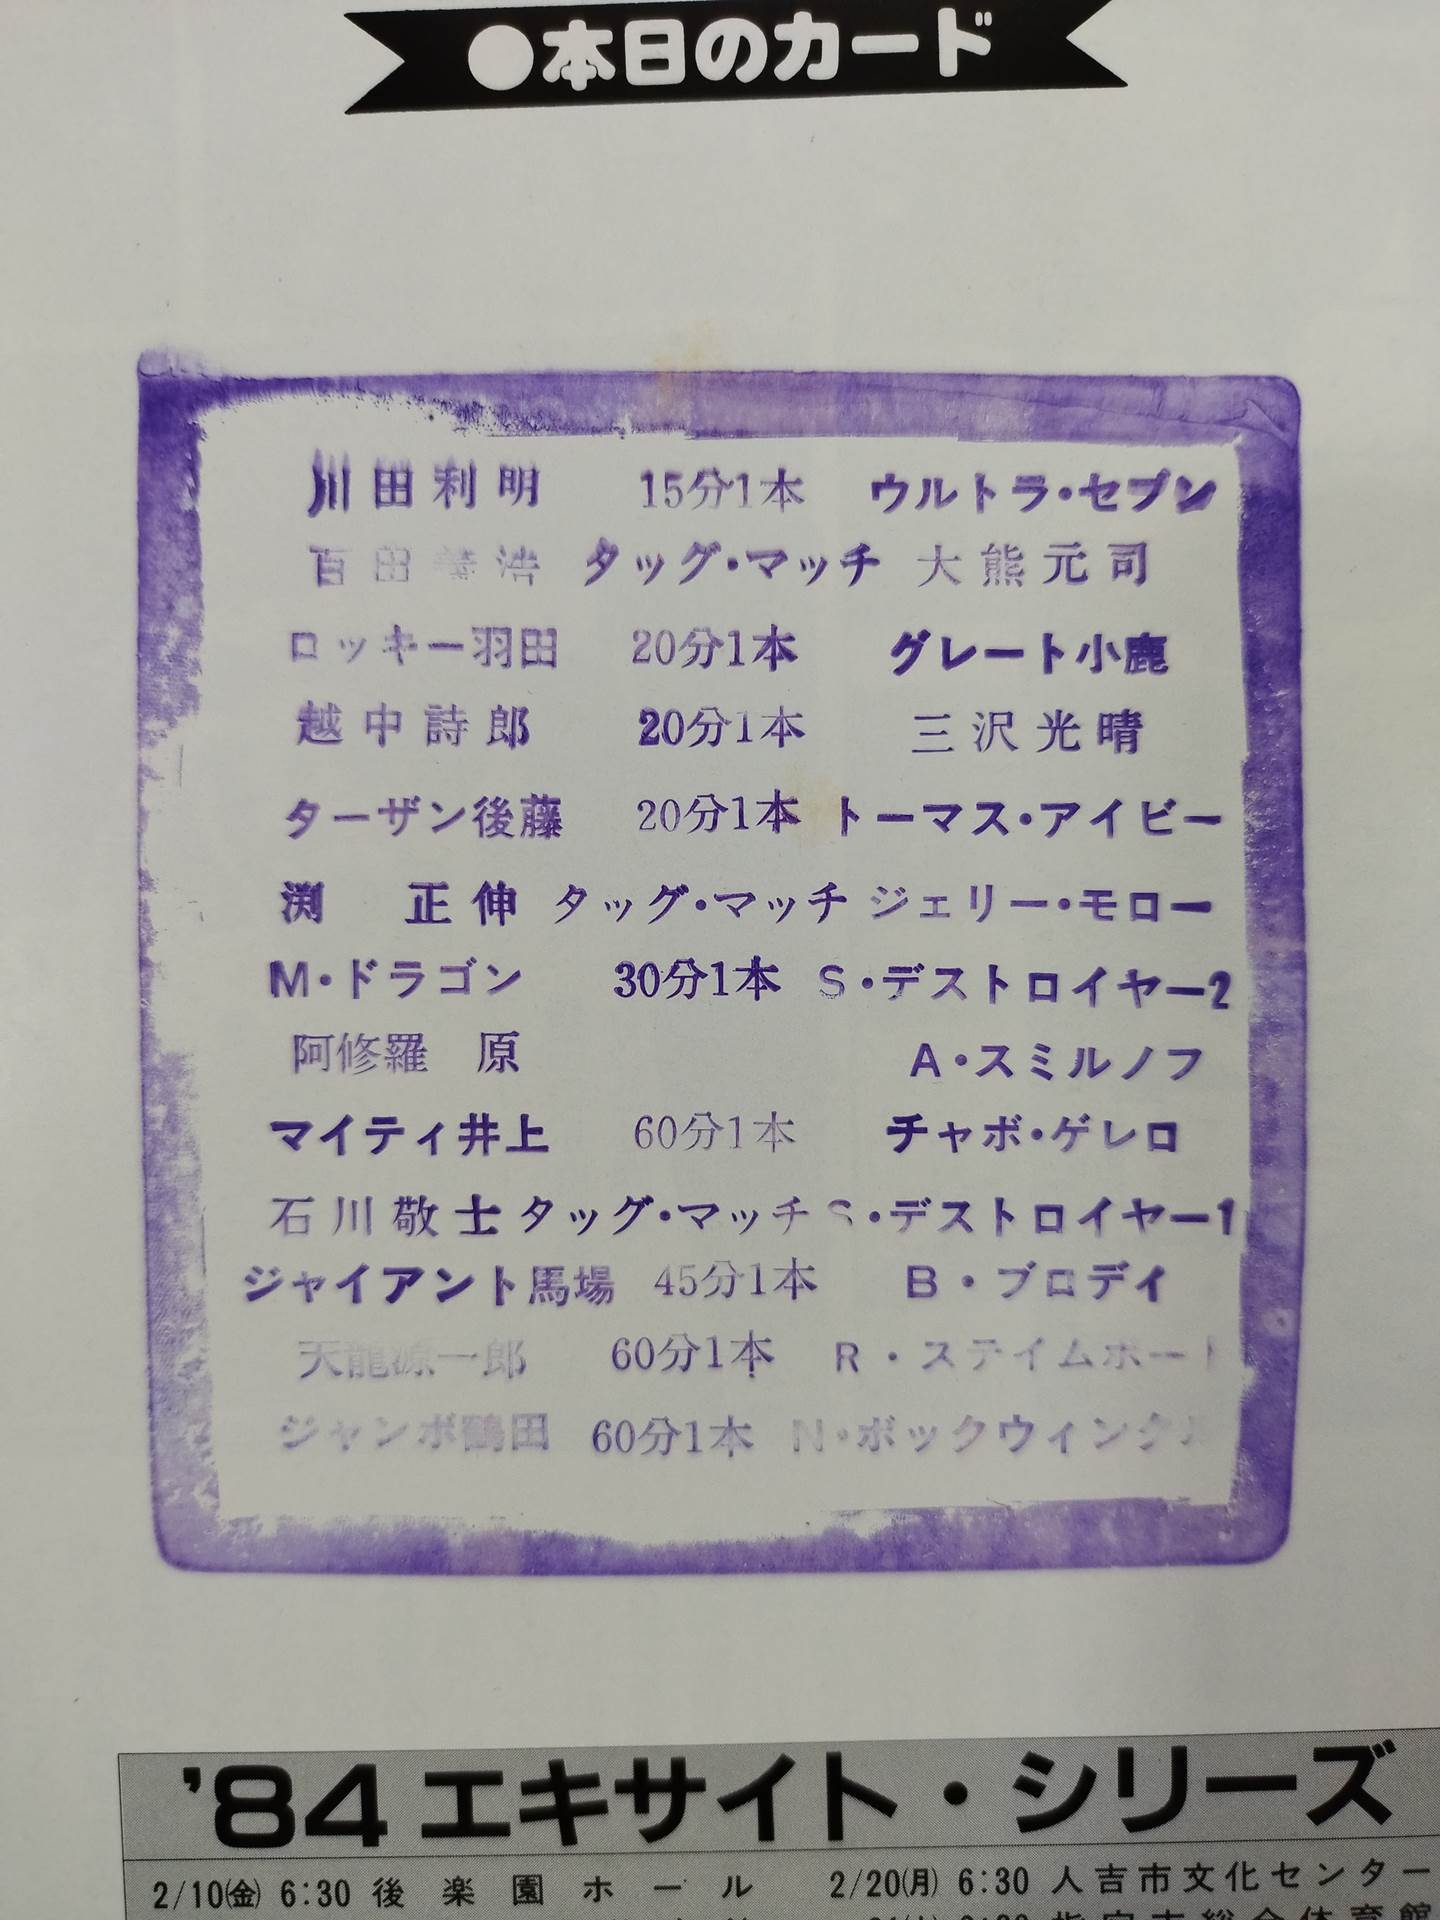 ●本日のカード
川田利明 15分1本 ウルトラ・セブン
百田義浩 タッグ・マッチ 大熊元司
ロッキー羽田 20分1本 グレート小鹿
越中詩郎 20分1本 三沢光晴
ターザン後藤 20分1本 トーマス・アイビー
渕 正伸 タッグ・マッチ ジェリー・モロー
M・ドラゴン 30分1本 S・デストロイヤー2
阿修羅 原 A・スミルノフ
マイティ井上 60分1本 チャボ・ゲレロ
石川敬士 タッグ・マッチ S・デストロイヤー1
ジャイアント馬場 45分1本 B・ブロディ
天龍源一郎 60分1本 R・ステイムボート
ジャンボ鶴田 60分1本 N・ボックウィンクル
'84エキサイト・シリーズ
2/10(金) 6:30 後楽園ホール 2/20(月) 6:30 人吉市文化センター